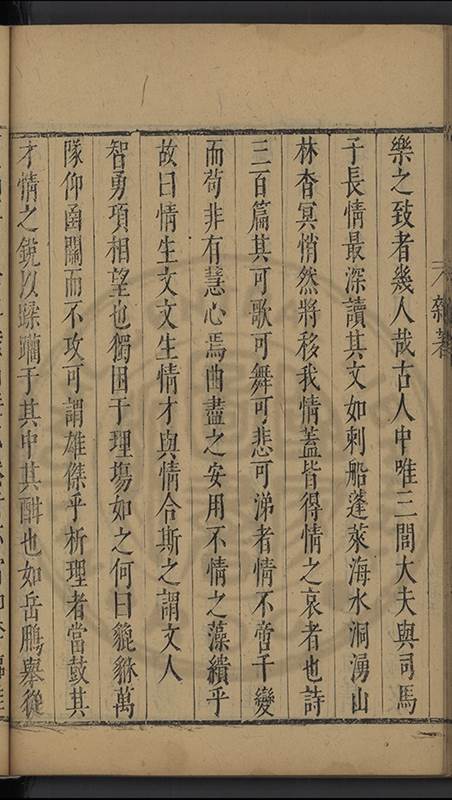 樂之致者幾人哉古人中唯三閭大夫與司馬
子長情最深讀其文如刺船蓬萊海水洞湧山
林杳冥悄然將移我情蓋皆得情之哀者也詩
三百篇其可歌可舞可悲可涕者情不啻千變
而苟非有慧心焉曲盡之安用不情之藻繢乎
故曰情生文文生情才與情合斯之謂文人
智勇項相望也獨困于理塲如之何曰貔貅萬
隊仰函關而不攻可謂雄傑乎析理者當鼓其
才情之銳以蹂躪于其中其酣也如岳鵬舉從